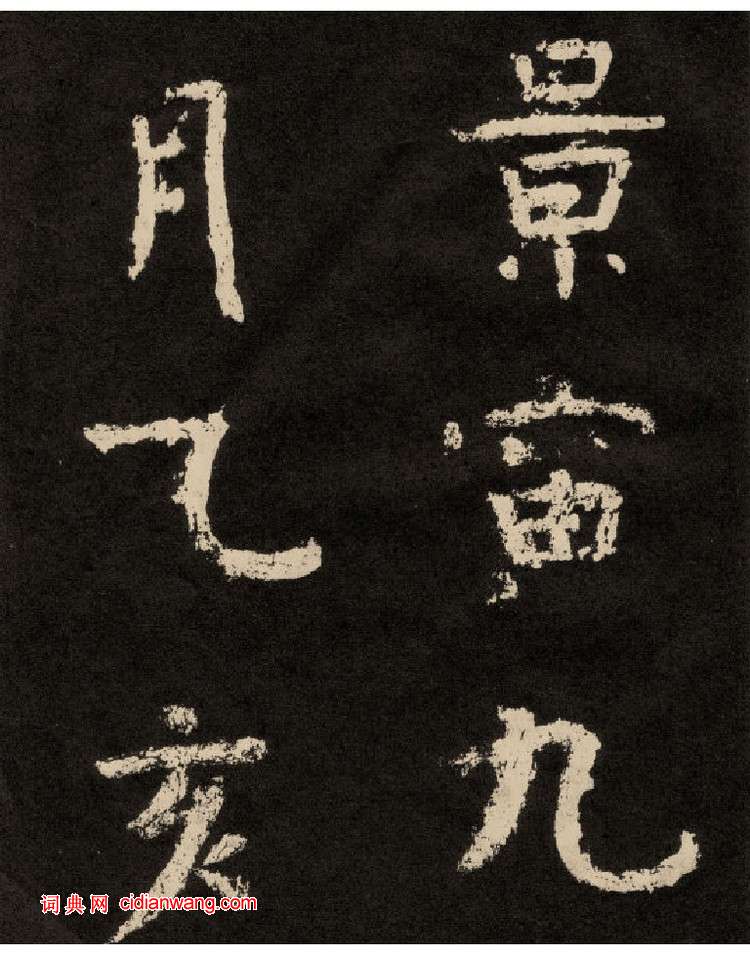 景寅九
月乙亥
词典网 cidianwang.com